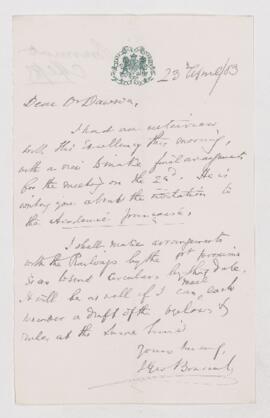 23 April/83
Dear Dr Dawson,
I had an interview
with His Excellency this morning,
with a view to make final arrangements
for the meeting on the 22d. He is
writing you about the invitation to
the Academie française.
I shall make arrangements
with the Railways by the
so as to send circulars by that date.
It will be as well if I can each
member a draft of the
rules at the same time
Yours truly,